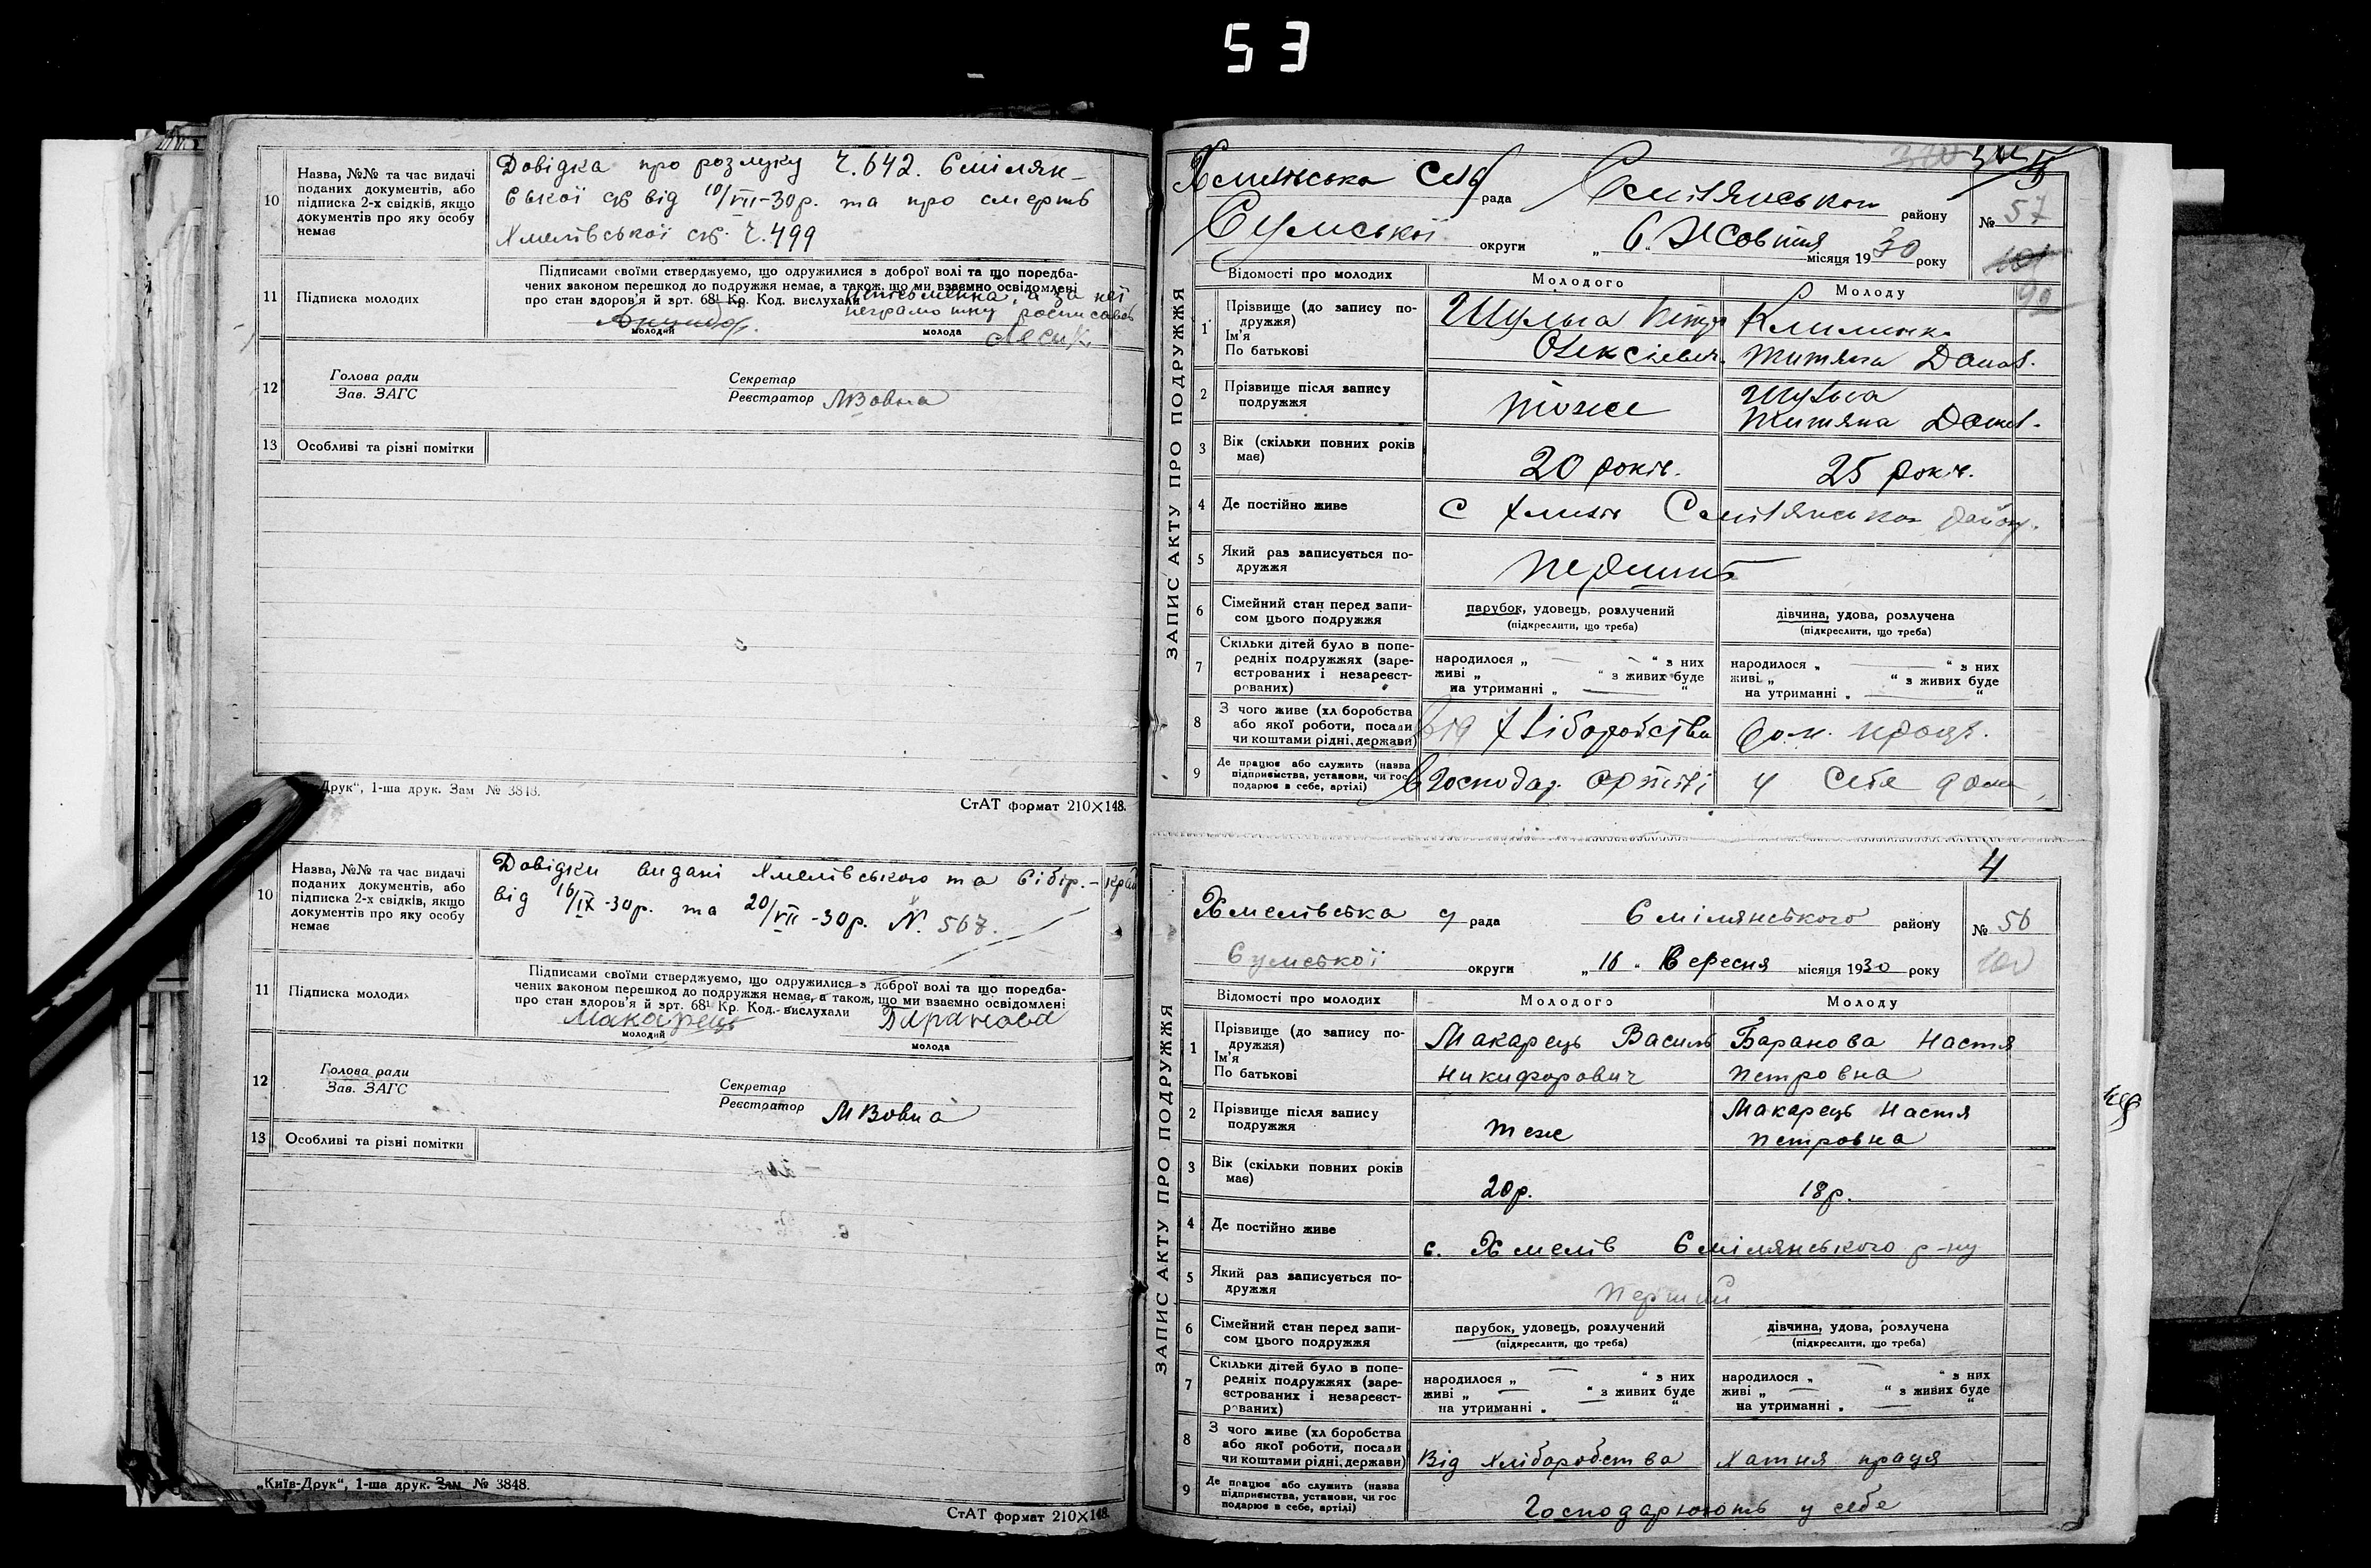 53
10
Назва, №№ та час видачі
поданих документів, або
підписка 2-х свідків, якщо
документів про яку особу
немає
Довідка про розлуку Ч. 642. Смілян-
ської с/р від 10/VII-30р. та про смерть
Хмелівської с/р. Ч. 499
11
Підписка молодих
Підписами своїми стверджуємо, що одружилися з доброї волі та що поредба-
чених законом перешкод до подружжя немає, а також, що ми взаємно освідомлені
про стан здоров'я й зрт. 68¹ Кр. Код. вислухали
неписьменна, а за неї
неграмотну росписавсь
молодий
молода
12
Голова ради
Зав. ЗАГС
Секретар
Реєстратор МВовна
13
Особливі та різні помітки
Друк“, 1-ша друк. Зам № 3848.
СтАТ формат 210×148.
10
Назва, №№ та час видачі
поданих документів, або
підписка 2-х свідків, якщо
документів про яку особу
немає
Довідки видані Хмелівського та Сібір.-край
від 16/IX-30р. та 20/VII-30р. N. 567.
11
Підписка молодих
Підписами своїми стверджуємо, що одружилися з доброї волі та що поредба-
чених законом перешкод до подружжя немає, а також, що ми взаємно освідомлені
про стан здоров'я й зрт. 68¹ Кр. Код. вислухали
Макарець Баранова
молодий
молода
12
Голова ради
Зав. ЗАГС
Секретар
Реєстратор МВовна
13
Особливі та різні помітки
„Київ-Друк“, 1-ша друк. Зам № 3848.
СтАТ формат 210×148.
ЗАПИС АКТУ ПРО ПОДРУЖЖЯ
рада Смілянського району
№ 57
Сумської округи „ 6 „ Жовтня місяця 1930 року
99
Відомості про молодих
Молодого
Молоду
1
Прізвище (до запису по-
дружжя)
Ім'я
По батькові
Шульга Петро
Олексієвич
Клименко
Титяна Данил.
2
Прізвище після запису
подружжя
тоже
Шульга
Титяна Данил.
3
Вік (скільки повних років
має)
20 років.
25 років.
4
Де постійно живе
с Хмелів Смілянського району.
5
Який раз записується по-
дружжя
перший
6
Сімейний стан перед запи-
сом цього подружжя
парубок, удовець, розлучений
(підкреслити, що треба)
дівчина, удова, розлучена
(підкреслити, що треба)
7
Скільки дітей було в попе-
редніх подружжях (заре-
єстрованих і незареєст-
рованих)
народилося „ — “ з них
живі „ “ з живих буде
на утриманні „ — “
народилося „ — “ з них
живі „ “ з живих буде
на утриманні „ — “
8
З чого живе (хл боробства
або якої роботи, посади
чи коштами рідні, держави)
від хліборобства
дом. праця.
9
Де працює або служить (назва
підприємства, установи, чи гос
подарює в себе, артілі)
в господар. артілі
у себе дома
4
ЗАПИС АКТУ ПРО ПОДРУЖЖЯ
Хмелівська с рада Смілянського району
№ 56
Сумської округи „ 16 „ Вересня місяця 1930 року
100
Відомості про молодих
Молодого
Молоду
1
Прізвище (до запису по-
дружжя)
Ім'я
По батькові
Макарець Василь
Никифорович
Баранова Настя
Петровна
2
Прізвище після запису
подружжя
теж
Макарець Настя
Петровна
3
Вік (скільки повних років
має)
20р.
18р.
4
Де постійно живе
с. Хмелів Смілянського р-ну
5
Який раз записується по-
дружжя
перший
6
Сімейний стан перед запи-
сом цього подружжя
парубок, удовець, розлучений
(підкреслити, що треба)
дівчина, удова, розлучена
(підкреслити, що треба)
7
Скільки дітей було в попе-
редніх подружжях (заре-
єстрованих і незареєст-
рованих)
народилося „ — “ з них
живі „ — “ з живих буде
на утриманні „ — “
народилося „ — “ з них
живі „ — “ з живих буде
на утриманні „ — “
8
З чого живе (хл боробства
або якої роботи, посади
чи коштами рідні, держави)
Від хліборобства
Хатня праця
9
Де працює або служить (назва
підприємства, установи, чи гос
подарює в себе, артілі)
Господарюють у себе